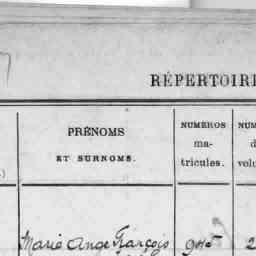 RÉPERTOIRE
PRÉNOMS
ET SURNOMS.
NUMÉROS
ma-
tricules.
Marie Ange François